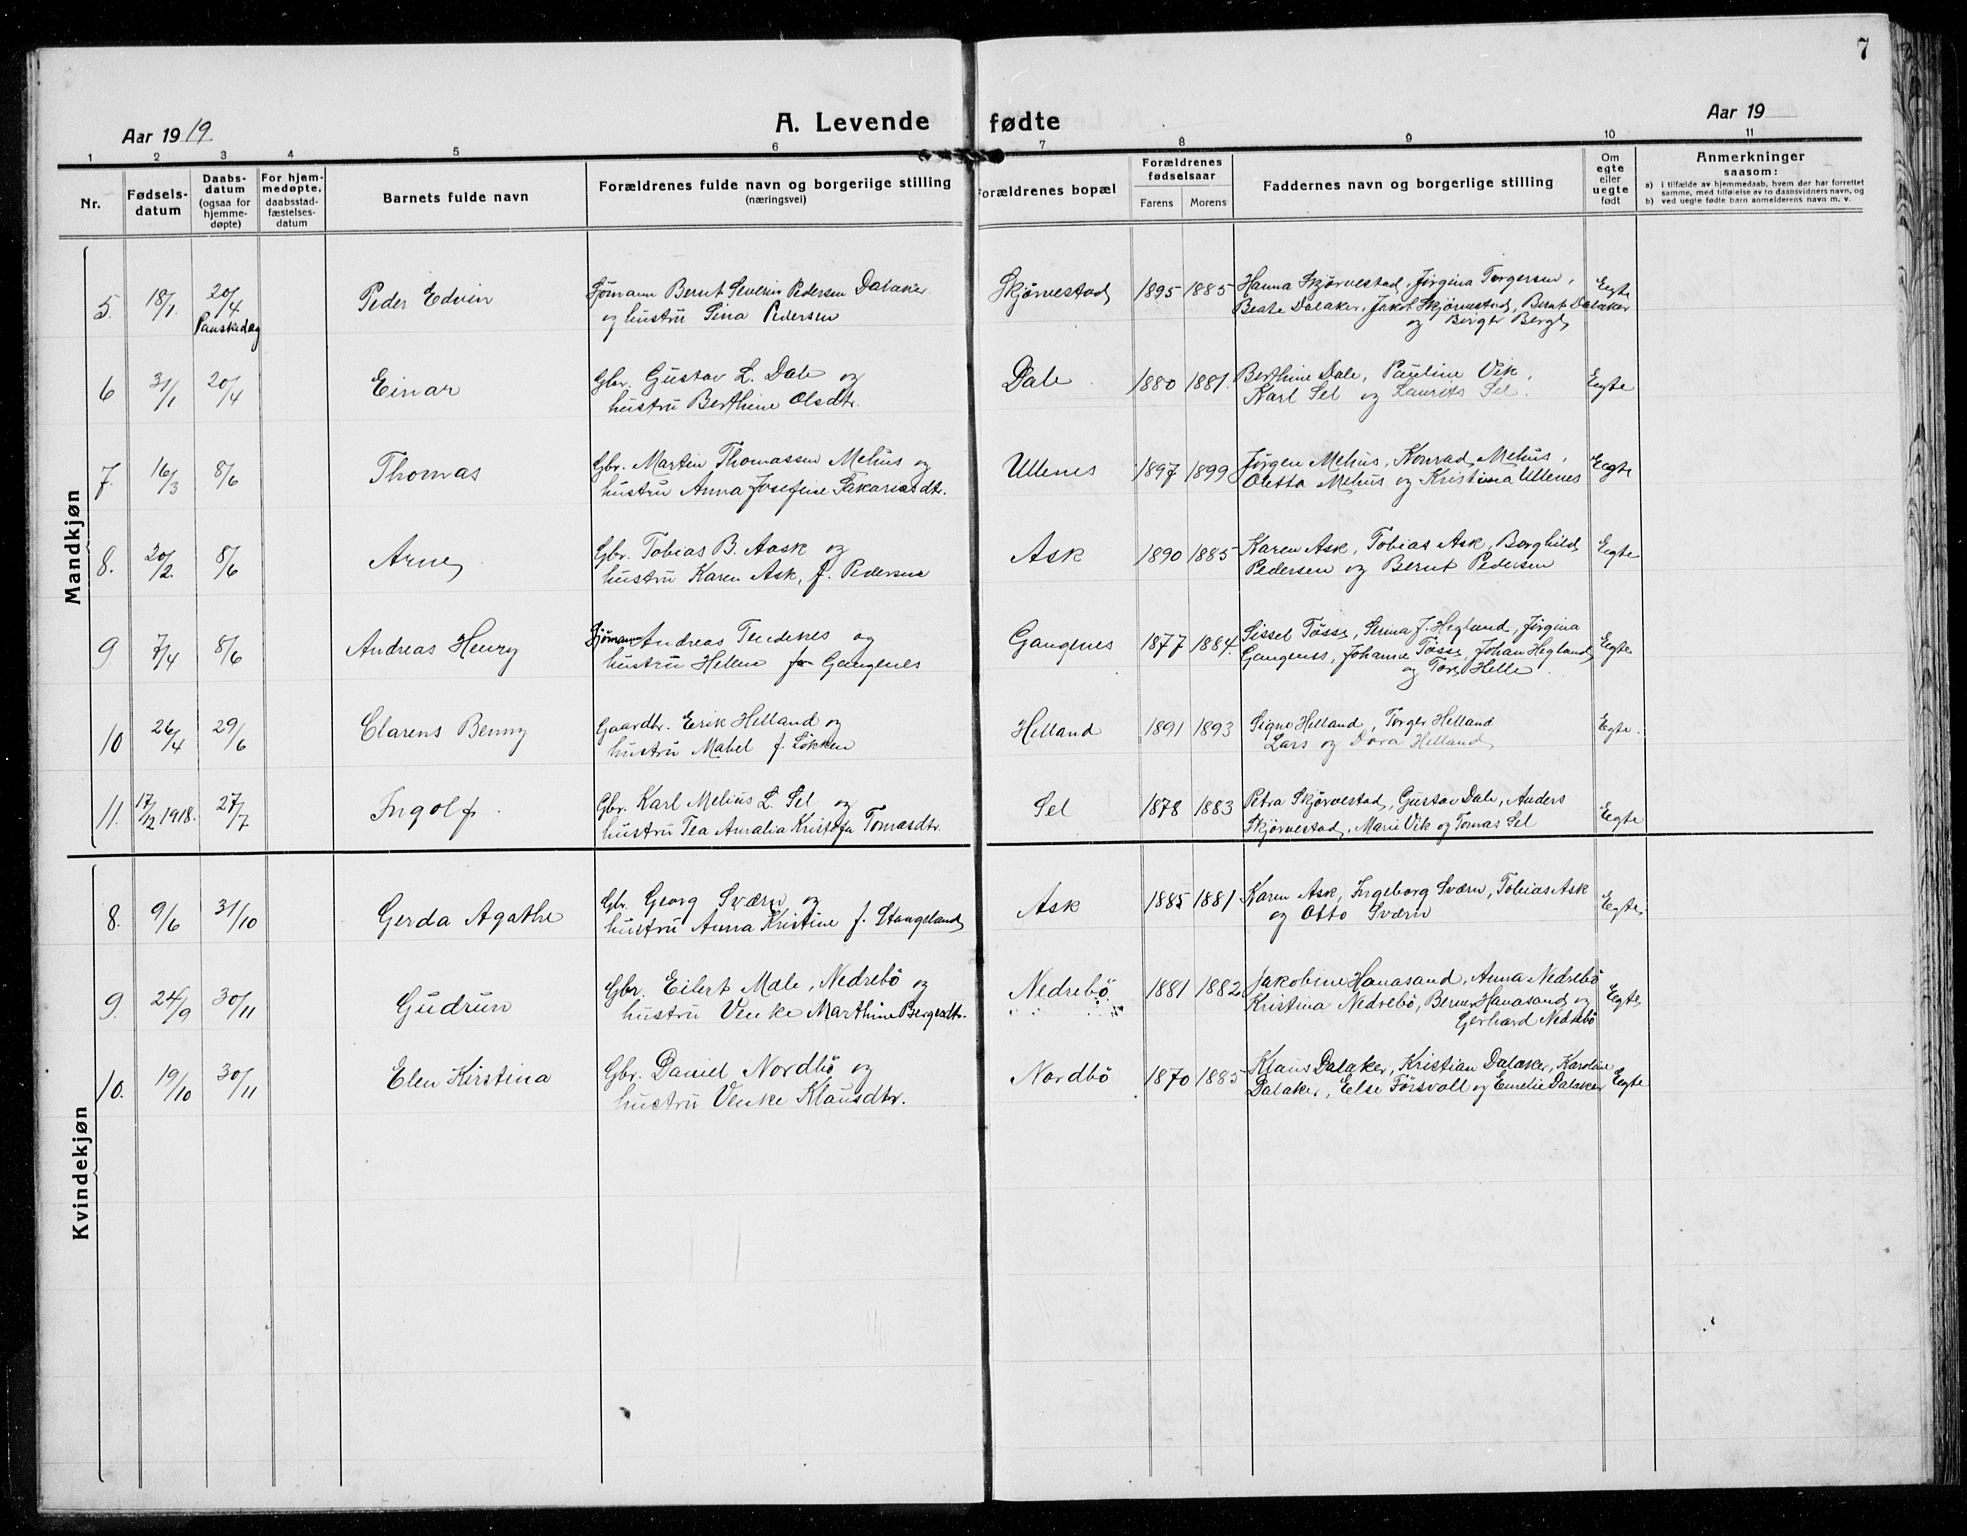 7
Aar 1919.
A. Levende fødte
Aar 19
1 2 3 4 5 6 7 8 9 10 11
Nr.
Fødsels-
datum
Daabs-
datum
(ogsaa for
hjemme-
døpte)
For hjem-
medøpte,
daabsstad-
fæstelses-
datum
Barnets fulde navn
Forældrenes fulde navn og borgerlige stilling
(næringsvei)
Forældrenes bopæl
Forældrenes
fødselsaar
Farens Morens
Faddernes navn og borgerlige stilling
Om
egte
eller
uegte
født
Anmerkninger
saasom:
a) i tilfælde av hjemmedaab, hvem der har forrettet
samme, med tilføielse av to daabsvidners navn, og
b) ved uegte fødte barn anmelderens navn m. v.
Mandkjøn
5. 18/1 20/4 Paaskedag
Peder Edvin
Sjømann Bernt Severin Pedersen Dalaker
og hustru Sina Pedersen
Skjørvestad 1895 1885
Hanna Skjørvestad, Jørgina Torgersen,
Beate Dalaker, Jakob Skjørvestad, Bernt Dalaker
og Birger Berge
Egte
6 31/1 20/4
Einar
Gbr. Gustav L. Dale og
hustru Berthine Olsdtr.
Dale 1880 1881.
Berthine Dale, Pauline Vik,
Karl Sel og Laurits Sel.
Egte
7. 16/3 8/6
Thomas
Gbr. Martin Thomassen Mehus og
hustru Anna Josefine Sakariasdtr.
Ullenes 1897 1899
Jørgen Mehus, Konrad Mehus,
Oletta Mehus og Kristina Ullenes
Egte
8. 20/2. 8/6
Arne
Gbr. Tobias B. Aask og
hustru Karen Ask, f. Pedersen
Ask 1890 1885
Karen Ask, Tobias Ask, Borghild
Pedersen og Bernt Pedersen
Egte
9. 7/4 8/6
Andreas Henry
Sjømann Andreas Tendenes og
hustru Helene Gangenes
Gangenes 1877 1884.
Sissel Tøsse, Serina J. Hegland, Jørgina
Gangenes, Johanne Tøsse, Johan Hegland
og Tore Helle.
Egte
10 26/4 29/6
Clarens Benny
Gaardbr. Erik Helland og
hustru Mabel f. Løkken
Helland 1891 1893
Signe Helland, Torger Helland
Lars og Dora Helland
Egte.
11. 17/12 1918. 27/7
Ingolf.
Gbr. Karl Melius L. Sel og
hustru Tea Amalia Kristofa Tomasdtr.
Sel 1878 1883
Petra Skjørvestad, Gustav Dale, Anders
Skjørvestad, Marie Vik og Tomas Sel
Egte
Kvindekjøn
8. 9/6 31/10
Gerda Agathe
Gbr. Georg Sværn og
hustru Anna Kristine f. Stangeland
Ask 1885 1881
Karen Ask, Ingeborg Sværn, Tobias Ask
og Otto Sværn
Egte
9. 24/9 30/11
Gudrun
Gbr. Eilert Male, Nedrebö og
hustru Venke Marthine Bergesdtr.
Nedrebö 1881 1882
Jakobine Hanasand, Anna Nedrebö
Kristina Nedrebö, Berner Hanasand og
Gerhard Nedrebö
Egte
10. 19/10 30/11
Elen Kirstina
Gbr. Daniel Nordbö og
hustru Venke Klausdtr.
Nordbö 1870 1885
Klaus Dalaker, Kristian Dalaker, Karoline
Dalaker, Else Försvoll og Emelie Dalaker
Egte